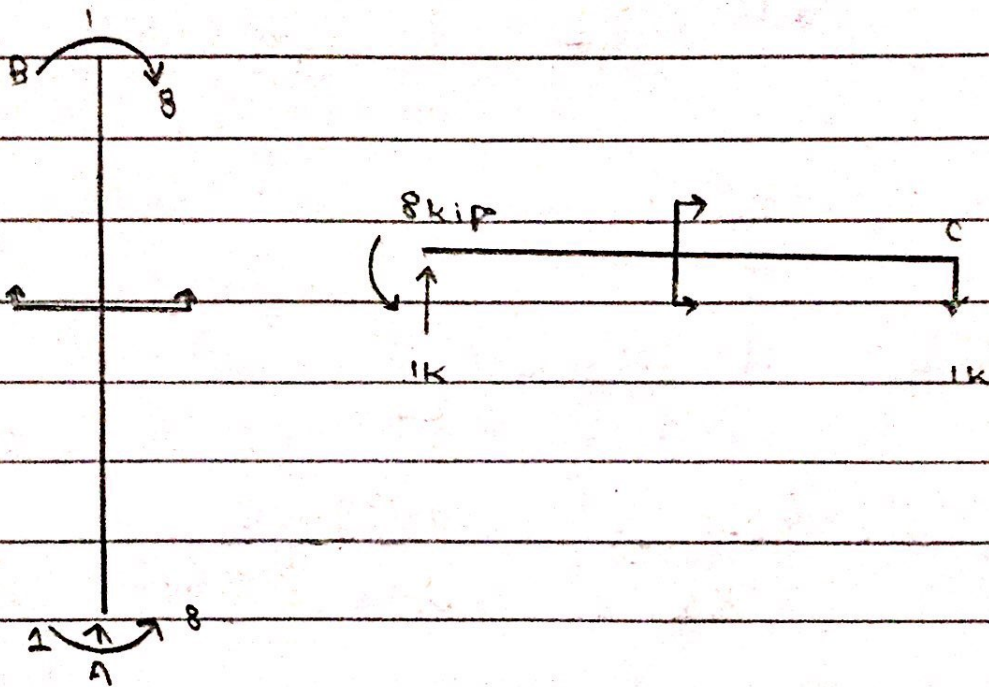 1
B
8
8kip
C
1K
1K
1
8
A